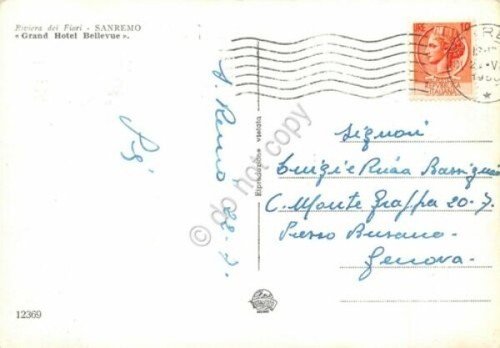 Riviera dei Fiori - SANREMO
« Grand Hotel Bellevue ».
S. Remo
Riproduzione vietata
do not copy
Signori
Luigi e Rina
C. Monte Grappa 20-7
Presso Busano
Genova.
12369